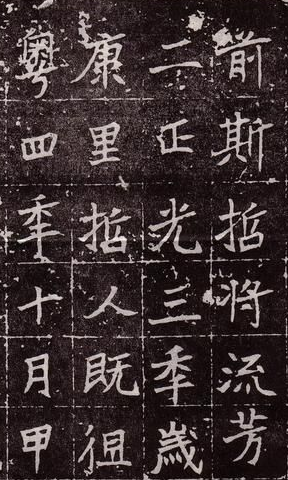 前斯哲將流芳
二正光三秊歲
康里哲人既徂
粵四秊十月甲